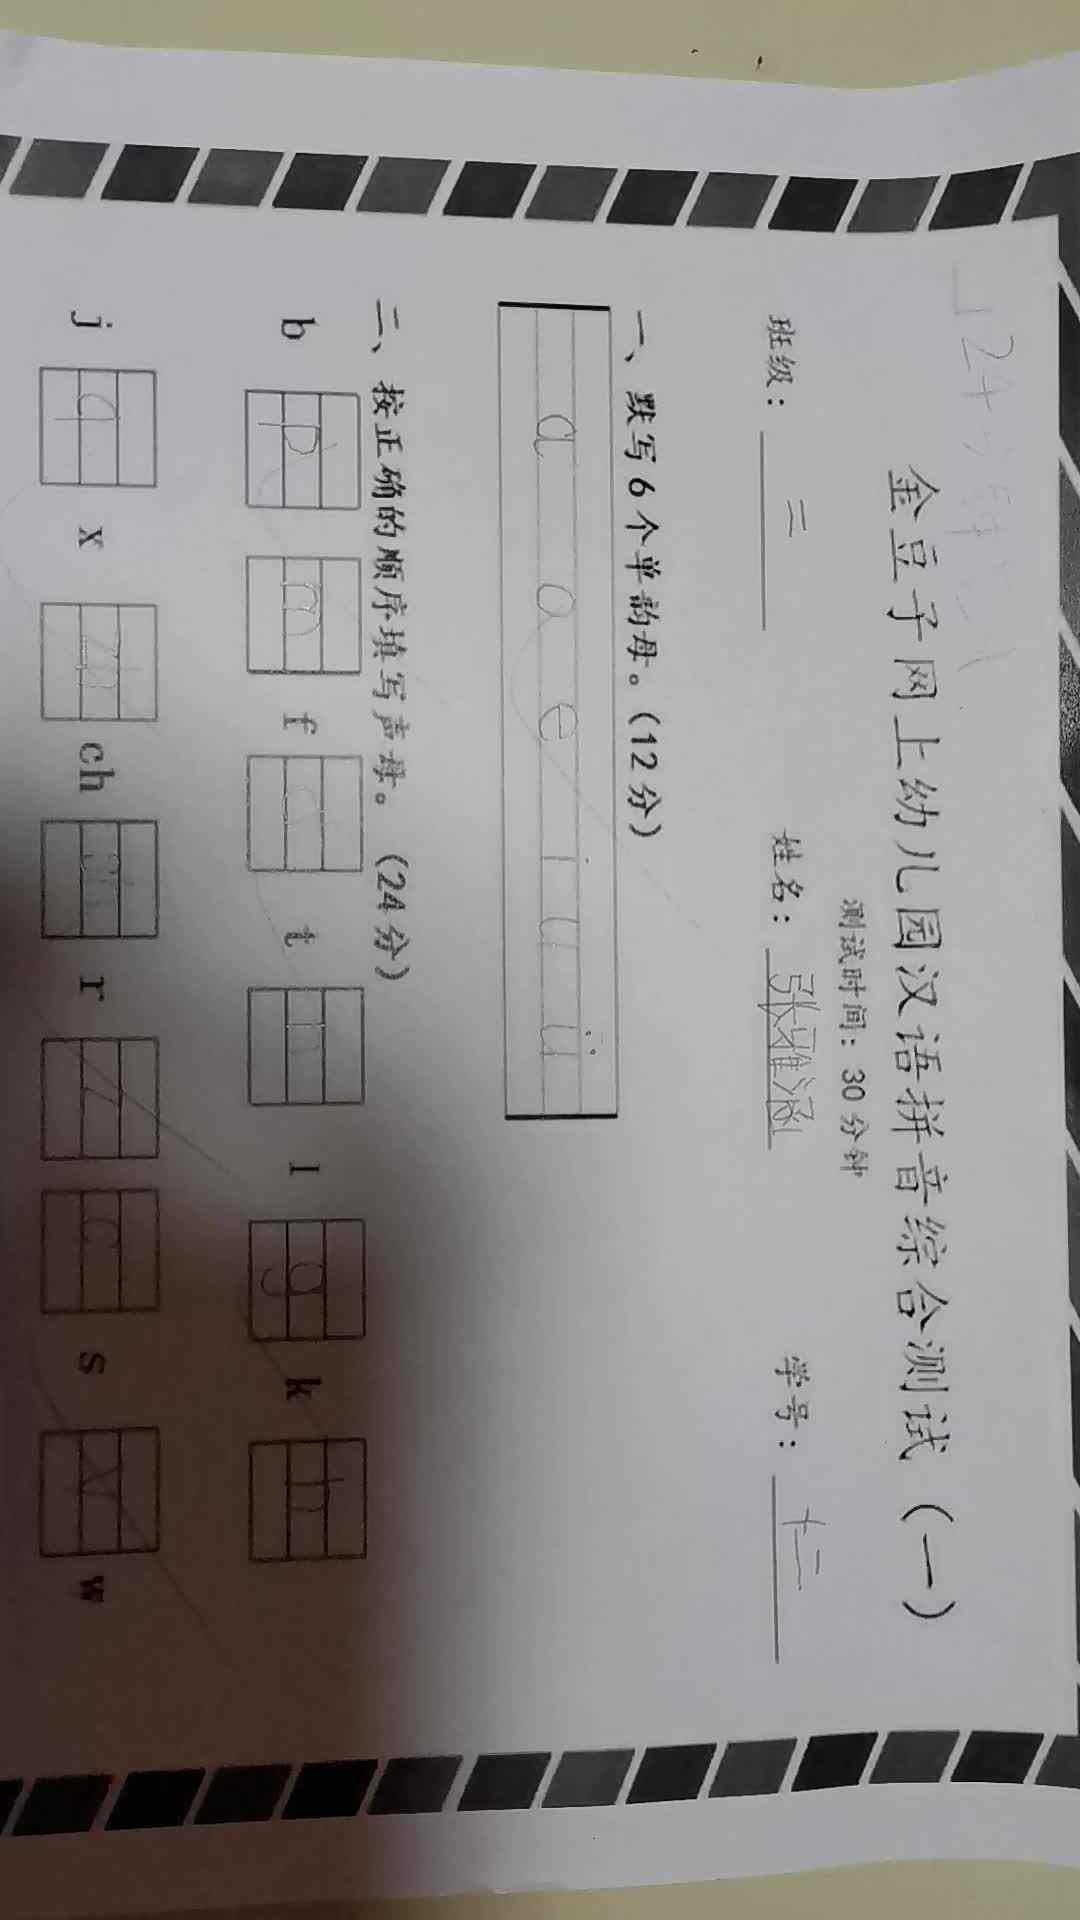 金豆子网上幼儿园汉语拼音综合测试（一）
测试时间：30分钟
班级：二 姓名：张雅涵 学号：十二
一、默写6个单韵母。（12分）
a o e i u ü
二、按正确的顺序填写声母。（24分）
b p m f d t n l g k h
j q x zh ch sh r z c s y w